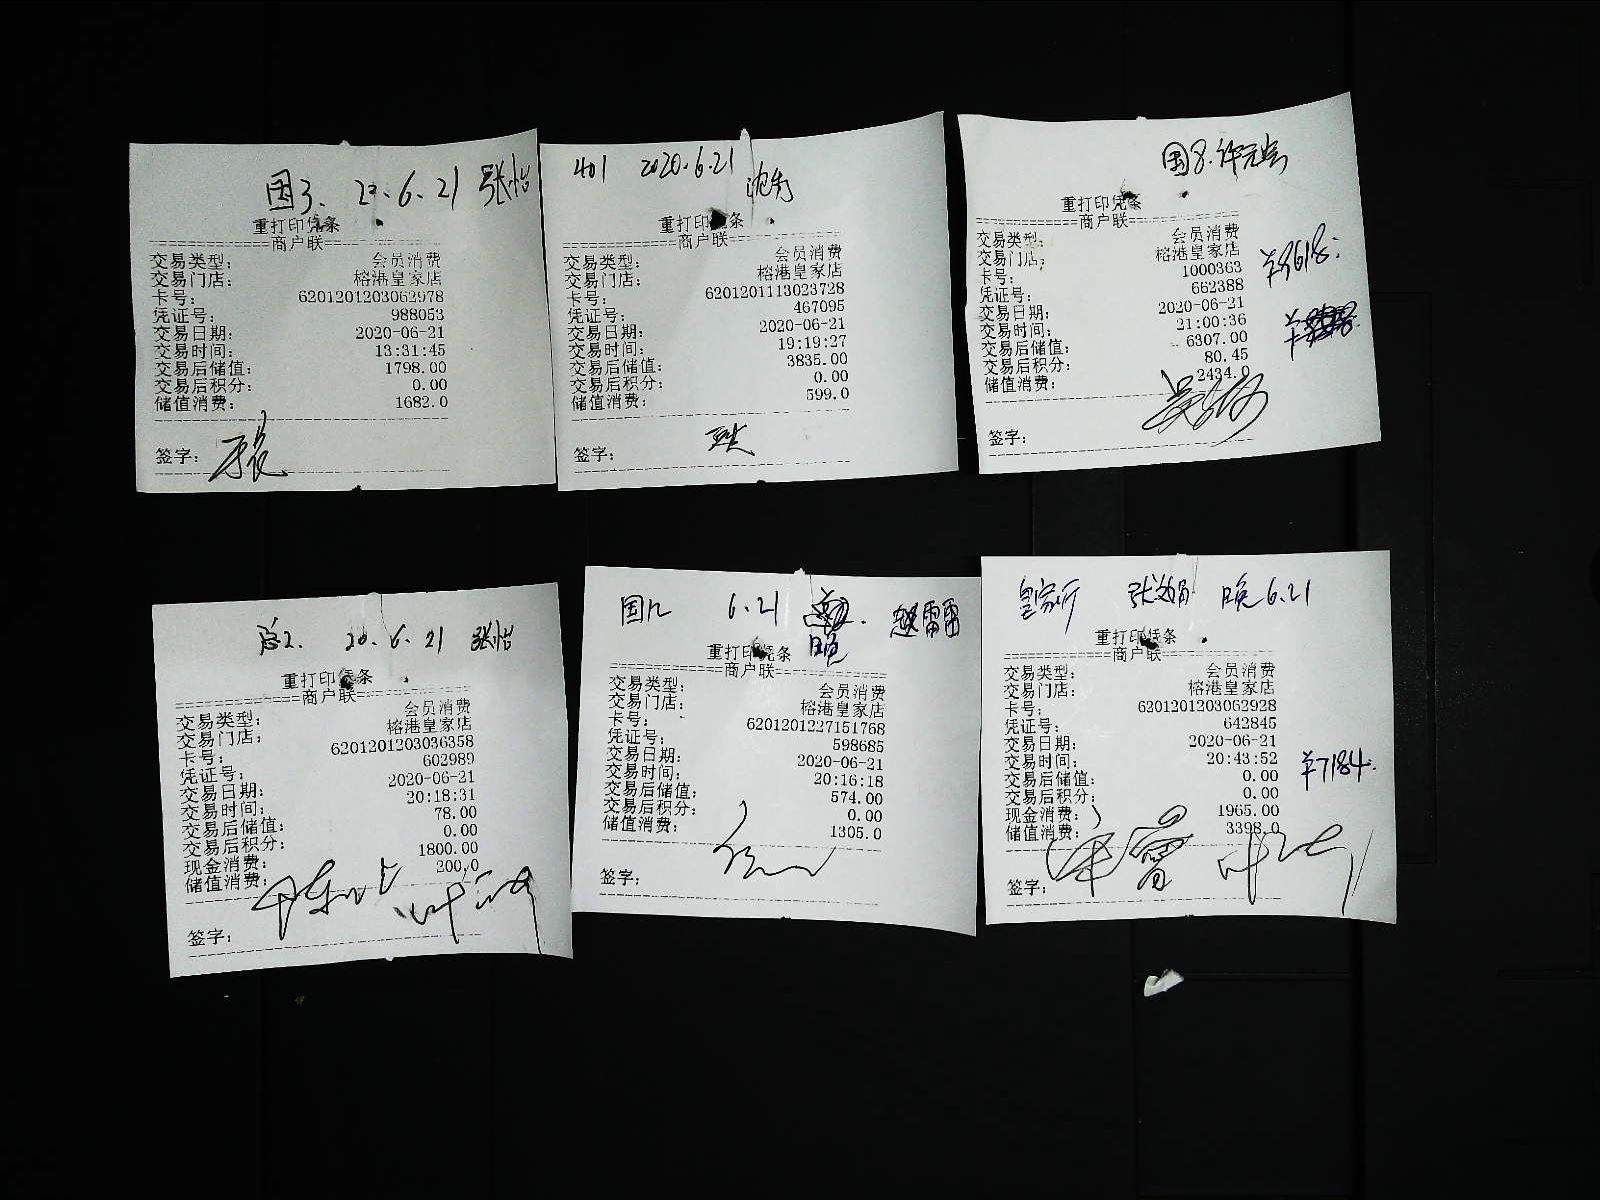 国3. 20.6.21 张怡
重打印凭条
商户联
交易类型: 会员消费
交易门店: 榕港皇家店
卡号: 6201201203062978
凭证号: 988053
交易日期: 2020-06-21
交易时间: 13:31:45
交易后储值: 1798.00
交易后积分: 0.00
储值消费: 1682.0
签字:
401 2020.6.21
重打印凭条
商户联
交易类型: 会员消费
交易门店: 榕港皇家店
卡号: 6201201113023728
凭证号: 467095
交易日期: 2020-06-21
交易时间: 19:19:27
交易后储值: 3835.00
交易后积分: 0.00
储值消费: 599.0
签字:
国8.
重打印凭条
商户联
交易类型: 会员消费
交易门店: 榕港皇家店
卡号: 1000363
凭证号: 662388
交易日期: 2020-06-21
交易时间: 21:00:36
交易后储值: 6307.00
交易后积分: 80.45
储值消费: 2434.0
签字:
总2. 20.6.21 张怡
重打印凭条
商户联
交易类型: 会员消费
交易门店: 榕港皇家店
卡号: 6201201203036358
凭证号: 602989
交易日期: 2020-06-21
交易时间: 20:18:31
交易后储值: 78.00
交易后积分: 0.00
现金消费: 1800.00
储值消费: 200.0
签字:
国12 6.21 赵雷雷
晚
重打印凭条
商户联
交易类型: 会员消费
交易门店: 榕港皇家店
卡号: 6201201227151768
凭证号: 598685
交易日期: 2020-06-21
交易时间: 20:16:18
交易后储值: 574.00
交易后积分: 0.00
储值消费: 1305.0
签字:
皇家厅 晚 6.21
重打印凭条
商户联
交易类型: 会员消费
交易门店: 榕港皇家店
卡号: 6201201203062928
凭证号: 642845
交易日期: 2020-06-21
交易时间: 20:43:52
¥7184.
交易后储值: 0.00
交易后积分: 0.00
现金消费: 1965.00
储值消费: 3398.0
签字: